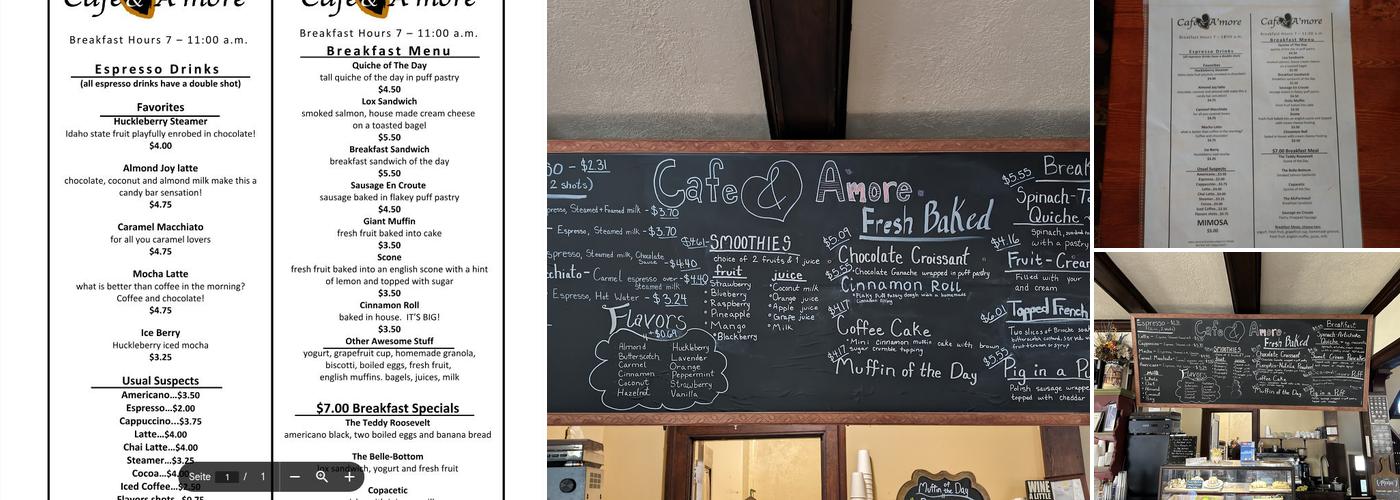 Cafe & A'more
Breakfast Hours 7 – 11:00 a.m.
Espresso Drinks
(all espresso drinks have a double shot)
Favorites
Huckleberry Steamer
Idaho state fruit playfully enrobed in chocolate!
$4.00
Almond Joy latte
chocolate, coconut and almond milk make this a
candy bar sensation!
$4.75
Caramel Macchiato
for all you caramel lovers
$4.75
Mocha Latte
what is better than coffee in the morning?
Coffee and chocolate!
$4.75
Ice Berry
Huckleberry iced mocha
$3.25
Usual Suspects
Americano...$3.50
Espresso...$2.00
Cappuccino...$3.75
Latte...$4.00
Chai Latte...$4.00
Steamer...$3.25
Cocoa...$4.00
Iced Coffee...$2.50
Flavors shots...$0.75
Cafe & A'more
Breakfast Hours 7 – 11:00 a.m.
Breakfast Menu
Quiche of The Day
tall quiche of the day in puff pastry
$4.50
Lox Sandwich
smoked salmon, house made cream cheese
on a toasted bagel
$5.50
Breakfast Sandwich
breakfast sandwich of the day
$5.50
Sausage En Croute
sausage baked in flakey puff pastry
$4.50
Giant Muffin
fresh fruit baked into cake
$3.50
Scone
fresh fruit baked into an english scone with a hint
of lemon and topped with sugar
$3.50
Cinnamon Roll
baked in house. IT'S BIG!
$3.50
Other Awesome Stuff
yogurt, grapefruit cup, homemade granola,
biscotti, boiled eggs, fresh fruit,
english muffins. bagels, juices, milk
$7.00 Breakfast Specials
The Teddy Roosevelt
americano black, two boiled eggs and banana bread
The Belle-Bottom
lox sandwich, yogurt and fresh fruit
Copacetic
Seite 1 / 1
Cafe & Amore
so - $2.31
2 shots)
presso, Steamed + Foamed milk - $3.70
Espresso, Steamed milk - $3.70
spresso, Steamed milk, Chocolate Sauce - $4.40
chiato - Carmel espresso over steamed milk - $4.40
Espresso, Hot Water - $3.24
Flavors
+$0.69
Almond
Butterscotch
Carmel
Cinnamon
Coconut
Hazelnut
Huckleberry
Lavender
Orange
Peppermint
Strawberry
Vanilla
$4.61 - SMOOTHIES
choice of 2 fruits & 1 juice
fruit
Strawberry
Blueberry
Raspberry
Pineapple
Mango
Blackberry
juice
Coconut milk
Orange juice
Apple juice
Grape juice
Milk
Fresh Baked
$5.09
Chocolate Croissant
Chocolate Ganache wrapped in puff pastry
$5.55
Cinnamon Roll
Flaky Puff Pastry dough with a homemade
Cinnamon filling
$4.17
Coffee Cake
Mini cinnamon muffin cake with brown
sugar crumble topping
$4.17
Muffin of the Day
Break
$5.55
Spinach-
Quiche
Spinach,
with a pastry
$4.16
Fruit-Crea
Filled with
and cream
$6.01
Topped French
Two slices of Brioche
$5.55
Pig in a P
Polish sausage wrappe
topped with cheddar
Muffin of the Day
WINE
A LITTLE
Cafe & A'more
Breakfast Hours 7 – 11:00 a.m.
Espresso Drinks
Favorites
Huckleberry Steamer
Almond Joy latte
Caramel Macchiato
Mocha Latte
Ice Berry
Usual Suspects
MIMOSA
$5.00
Cafe & A'more
Breakfast Menu
Quiche of The Day
Lox Sandwich
Breakfast Sandwich
Sausage En Croute
Giant Muffin
Scone
Cinnamon Roll
$7.00 Breakfast Meal
The Teddy Roosevelt
The Belle-Bottom
Copacetic
Espresso
Cafe & Amore
SMOOTHIES
Flavors
Fresh Baked
Chocolate Croissant
Coffee Cake
Muffin of the Day
Breakfast
Pig in a Puff